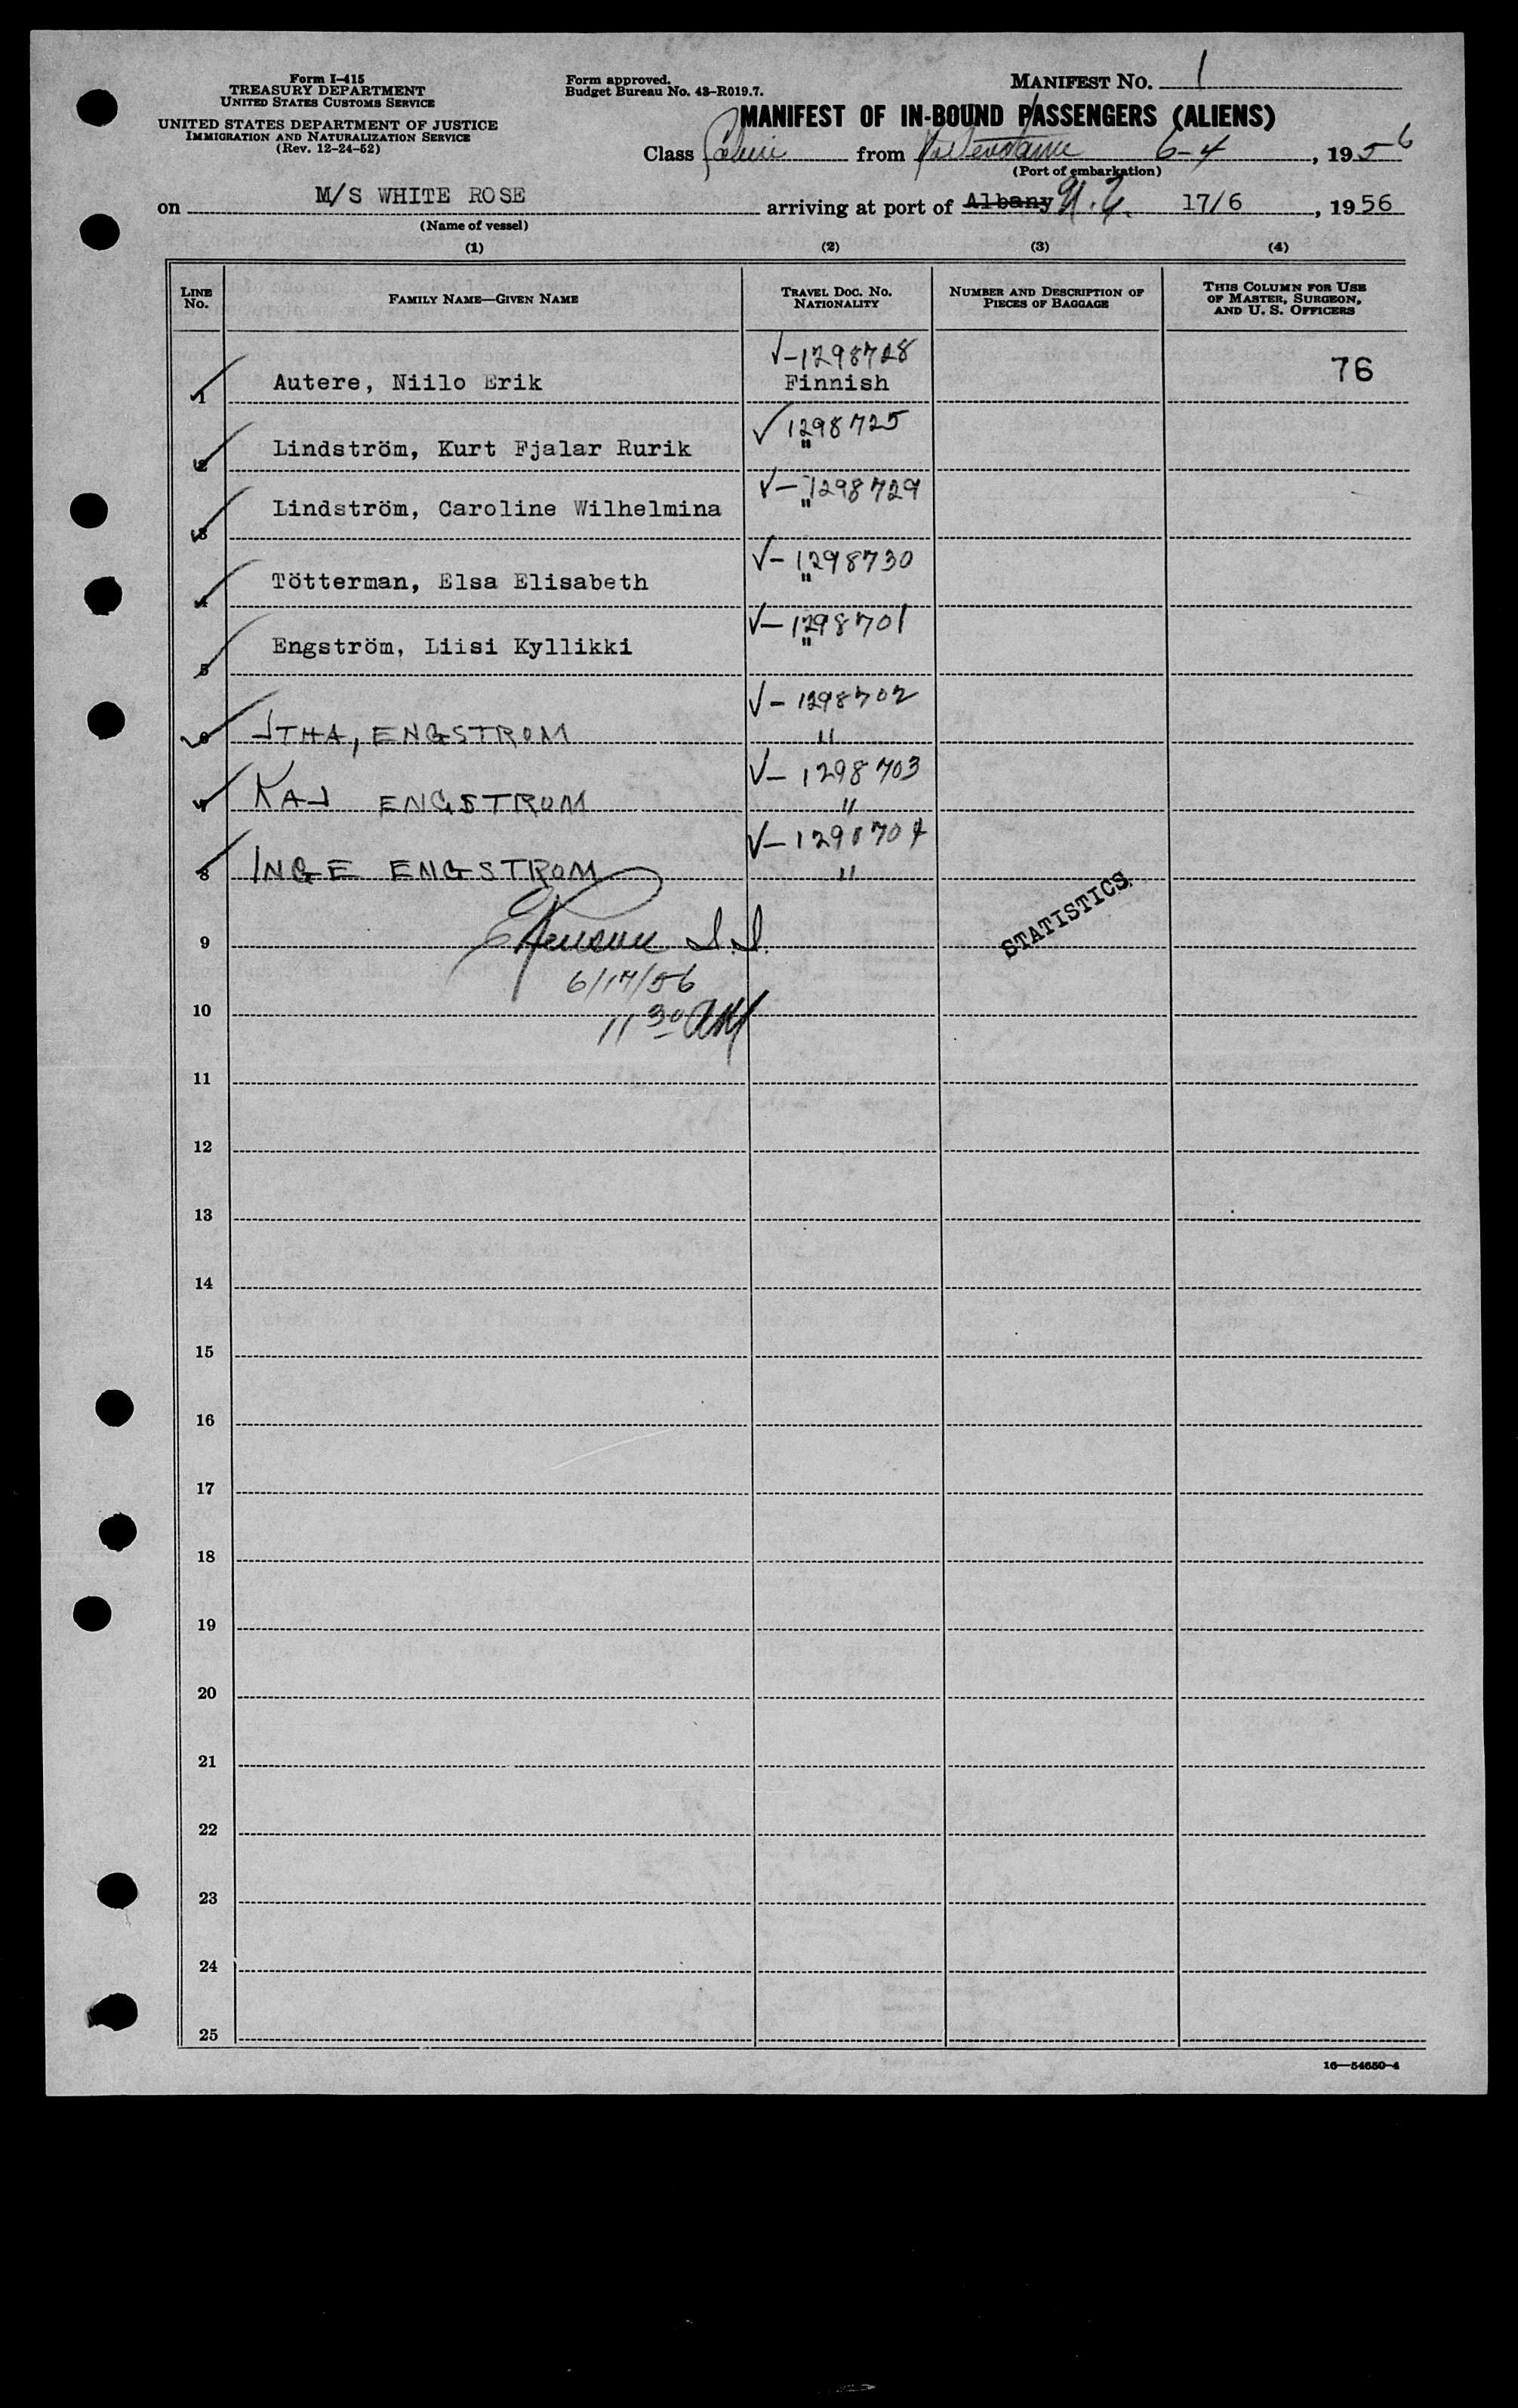 Form I-415
TREASURY DEPARTMENT
UNITED STATES CUSTOMS SERVICE
UNITED STATES DEPARTMENT OF JUSTICE
IMMIGRATION AND NATURALIZATION SERVICE
(Rev. 12-24-52)
Form approved.
Budget Bureau No. 43-R019.7.
MANIFEST NO. 1
MANIFEST OF IN-BOUND PASSENGERS (ALIENS)
Class from 6-4, 1956
(Port of embarkation)
on M/S WHITE ROSE arriving at port of Albany N.Y. 17/6, 1956
(Name of vessel)
(1) (2) (3) (4)
LINE NO. FAMILY NAME—GIVEN NAME TRAVEL DOC. NO. NATIONALITY NUMBER AND DESCRIPTION OF PIECES OF BAGGAGE THIS COLUMN FOR USE OF MASTER, SURGEON, AND U. S. OFFICERS
V-1298728
1 Autere, Niilo Erik Finnish 76
V 1298725
2 Lindström, Kurt Fjalar Rurik "
V-1298729
3 Lindström, Caroline Wilhelmina "
V-1298730
4 Tötterman, Elsa Elisabeth "
V-1298701
5 Engström, Liisi Kyllikki "
V-1298702
6 JTHA, ENGSTROM "
V-1298703
7 KAJ ENGSTROM "
V-1298704
8 INGE ENGSTROM "
STATISTICS
9
6/17/56
10
11 30 AM
11
12
13
14
15
16
17
18
19
20
21
22
23
24
25
16—54650-4